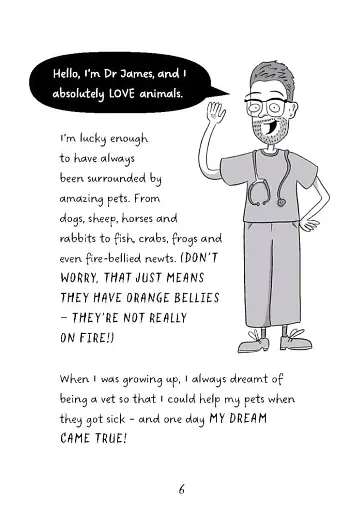 Hello, I'm Dr James, and I
absolutely LOVE animals.
I'm lucky enough
to have always
been surrounded by
amazing pets. From
dogs, sheep, horses and
rabbits to fish, crabs, frogs and
even fire-bellied newts. (DON'T
WORRY, THAT JUST MEANS
THEY HAVE ORANGE BELLIES
– THEY'RE NOT REALLY
ON FIRE!)
When I was growing up, I always dreamt of
being a vet so that I could help my pets when
they got sick – and one day MY DREAM
CAME TRUE!
6